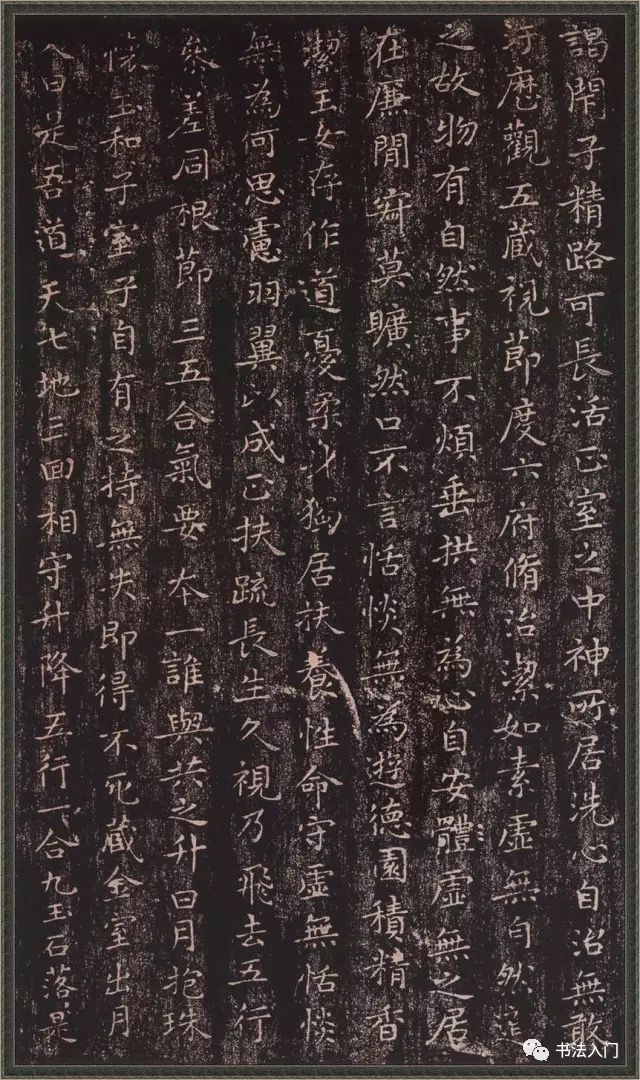 謁閇子精路可長活正室之中神所居洗心自治無敢
汙歷觀五藏視節度六府脩治潔如素虛無自然道
之故物有自然事不煩垂拱無為心自安體虛無之居
在廉閒寂莫曠然口不言恬惔無為遊德園積精香
潔玉女存作道憂柔身獨居扶養性命守虛無恬惔
無為何思慮羽翼以成正扶疏長生久視乃飛去五行
參差同根節三五合氣要本一誰與共之升日月抱珠
懷玉和子室子自有之持無失即得不死藏金室出月
入日是吾道天七地三回相守升降五行一合九玉石落〻是
书法入门